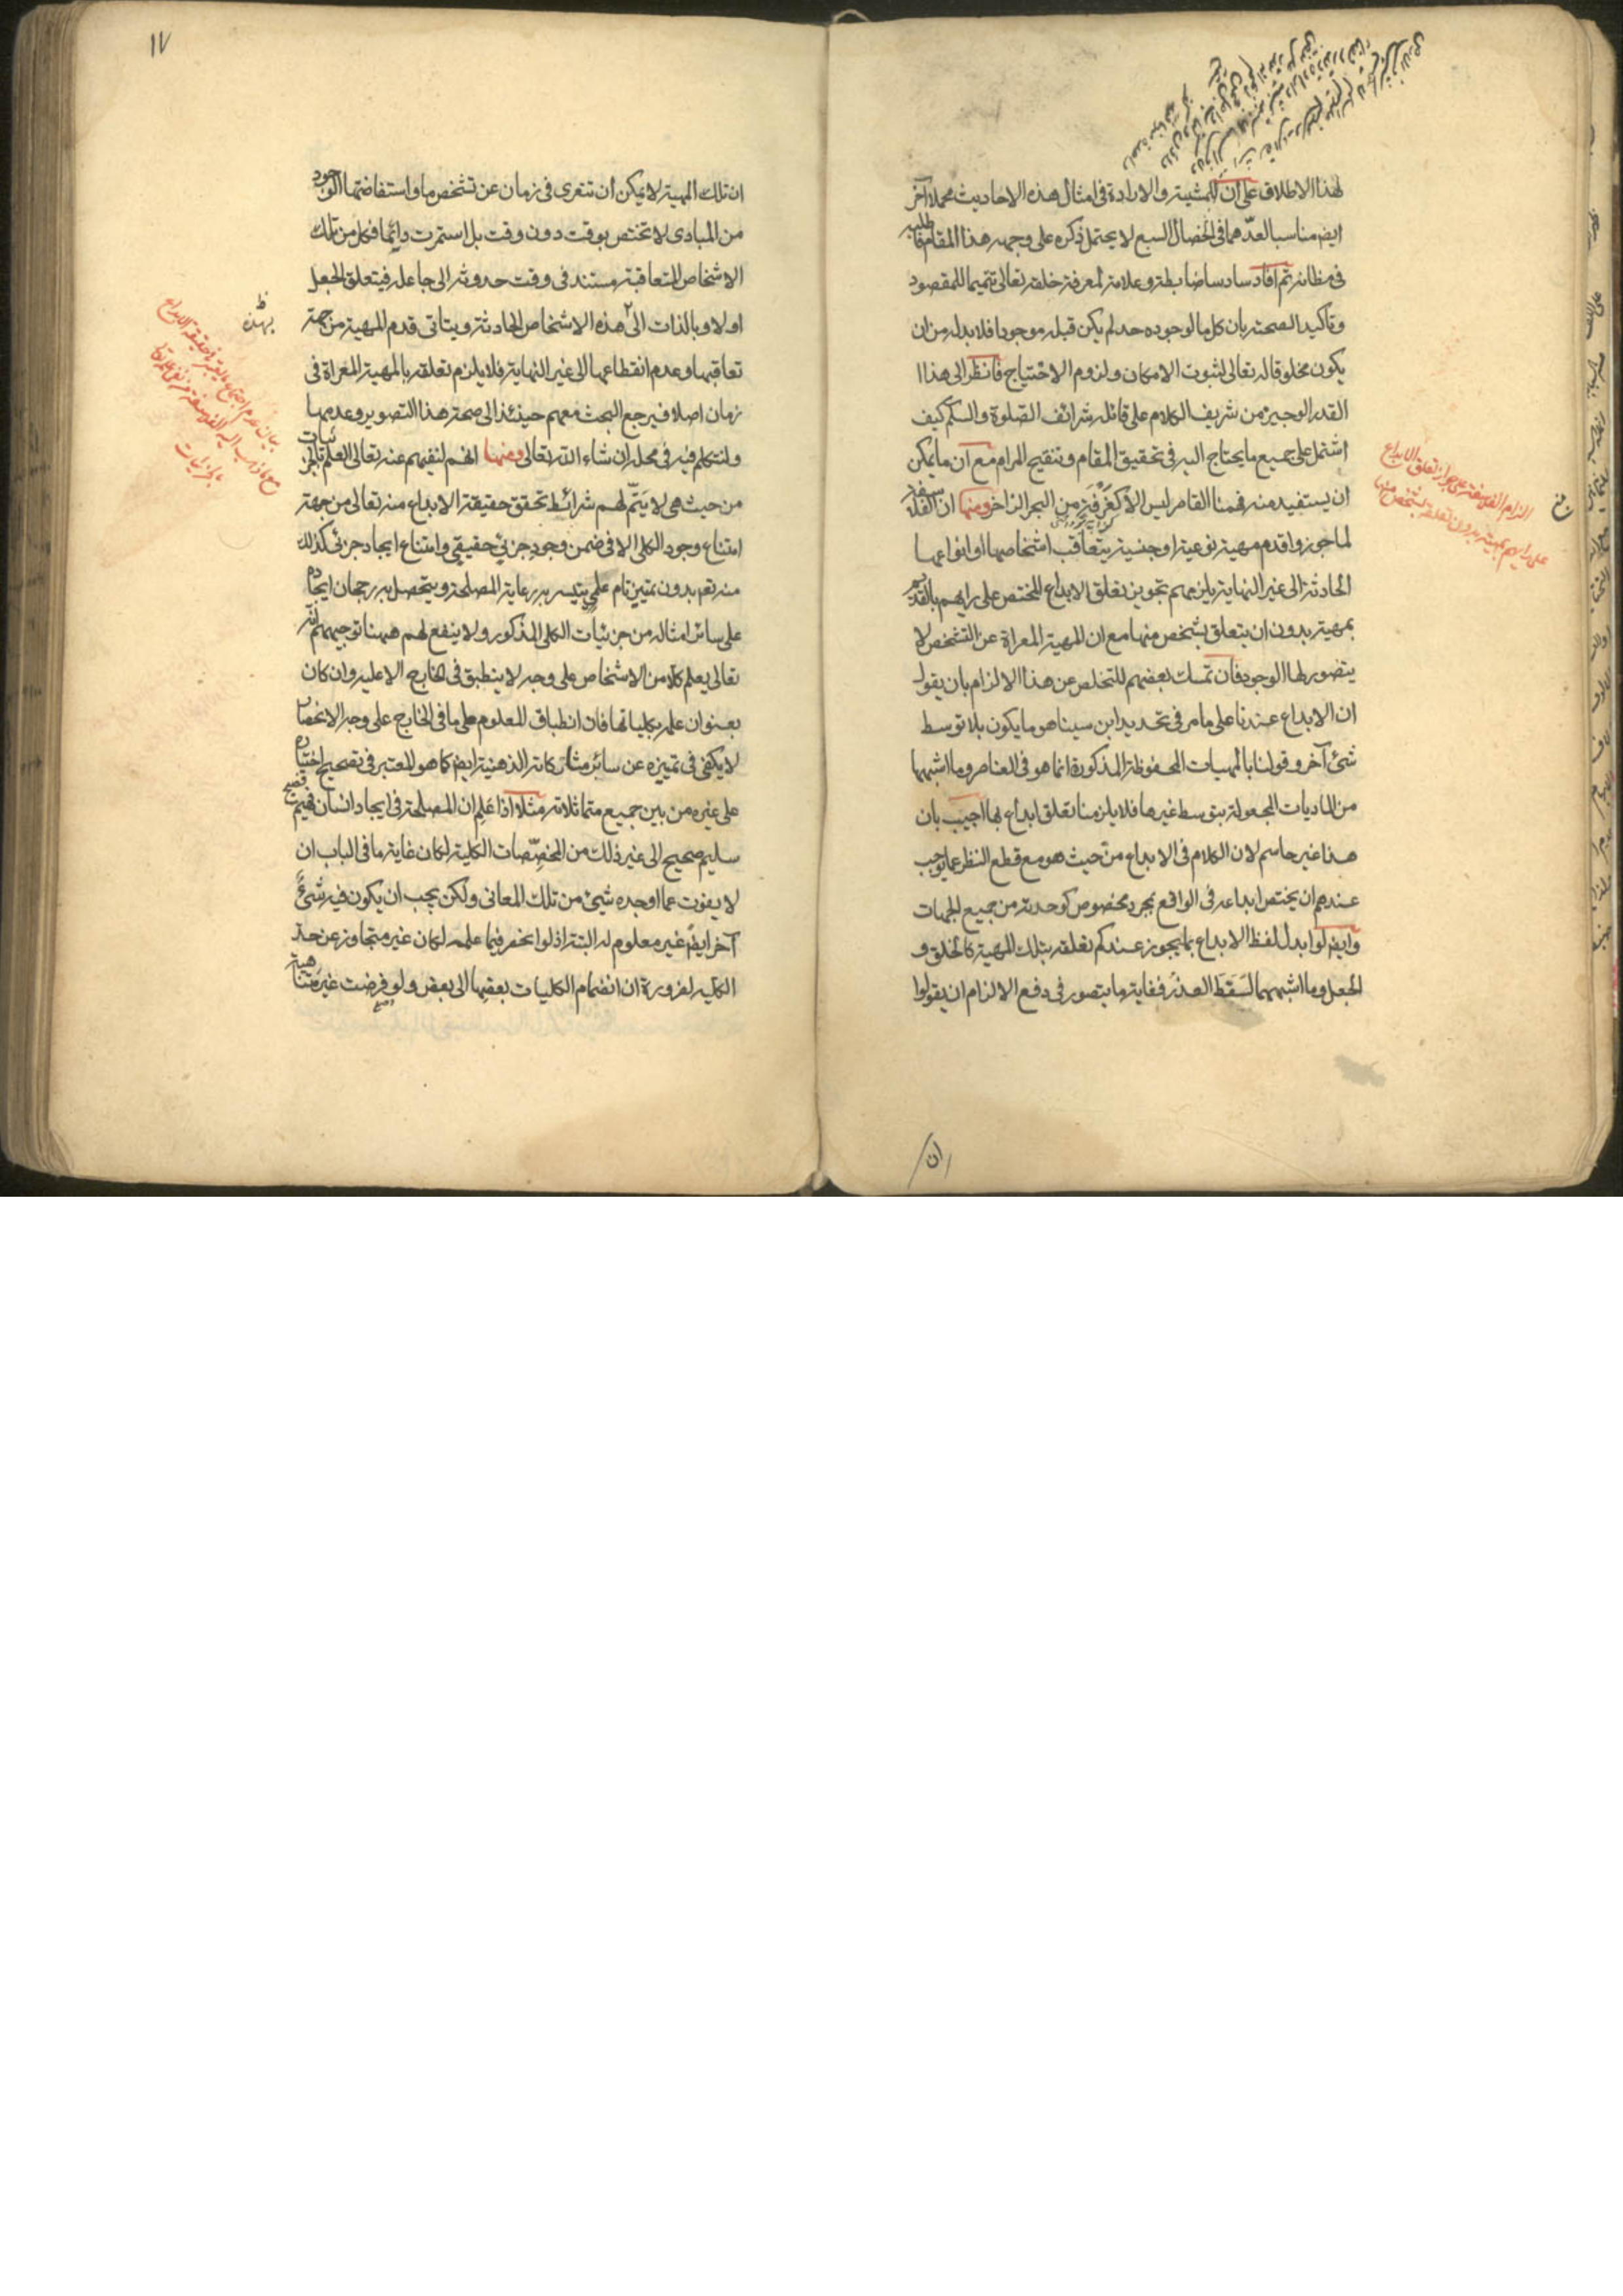 لهذا الاطلاق على ان للمشية والارادة فى امثال هذه الاحاديث محملا آخر
ايض مناسبا لعدّهما فى الخصال السبع لا يحتمل ذكره على وجهه هذا المقام فاطلبه
فى مظانه ثم افاد سادسا ضابطة وعلامة لمعرفة خلقه تعالى تتميما للمقصود
وتأكيدا لصحته بان كل ما لوجوده حد لم يكن قبله موجودا فلا بد له من ان
يكون مخلوقا له تعالى لثبوت الامكان ولزوم الاحتياج فانظر الى هذا
القدر الوجيز من شريف الكلام على قائله شرائف الصلوة والسلم كيف
اشتمل على جميع ما يحتاج اليه فى تحقيق المقام وتنقيح المرام مع ان ما يمكن
ان يستفيد منه فهمنا القاصر ليس الا كغرفة من البحر الزاخر ومنها ان الفلاسفة
لما جوزوا قدم مهية نوعية او جنسية يتعاقب اشخاصها او انواعها
الحادثة الى غير النهاية يلزمهم تجويز تعلق الابداع المختص على رايهم بالقديم
بمهية بدون ان يتعلق بشخص منها مع ان المهية المعراة عن التشخص لا
يتصور لها الوجود فان تمسك بعضهم للتخلص عن هذا الالزام بان يقول
ان الابداع عندنا على ما مر فى تحديد ابن سينا هو ما يكون بلا توسط
شئ آخر وقولنا بالمهيات المحفوظة المذكورة انما هو فى العناصر وما اشبهها
من الماديات المجعولة بتوسط غيرها فلا يلزمنا تعلق ابداع بها اجيب بان
هذا غير حاسم لان الكلام فى الابداع من حيث هو مع قطع النظر عما يوجب
عندهم ان يختص ابداعه فى الواقع بمجرد مخصوص كوحدته من جميع الجهات
وايض لو ابدل لفظ الابداع بما يجوز عندكم تعلقه بتلك المهية كالخلق و
الجعل وما اشبههما لسقط العذر فغاية ما يتصور فى دفع الالزام ان يقولوا
ان
الزام الفلاسفة على جواز تعلق الابداع
على رايهم بمهية بدون تعلقه بشخص منها
١٧
ان تلك المهية لا يمكن ان تتعرى فى زمان عن تشخص ما واستفاضتها الوجود
من المبادى لا تختص بوقت دون وقت بل استمرت دائما فكل من تلك
الاشخاص المتعاقبة مستند فى وقت حدوثه الى جاعله فيتعلق الجعل
اولا وبالذات الى هذه الاشخاص الحادثة ويتاتى قدم المهية من جهة
بهذه
تعاقبها وعدم انقطاعها الى غير النهاية فلا يلزم تعلقه بالمهية المعراة فى
زمان اصلا فيرجع البحث معهم حينئذ الى صحة هذا التصوير وعدمها
ولنتكلم فيه فى محله ان شاء الله تعالى ومنها انهم لنفيهم عنه تعالى العلم بالجزئيات
من حيث هى لا يتمّ لهم شرائط تحقق حقيقة الابداع منه تعالى من جهة
امتناع وجود الكلى الا فى ضمن وجود جزئى حقيقى وامتناع ايجاد جزئى كذلك
منه تعم بدون تميز تام علمى يتيسر به رعاية المصلحة ويتحصل به رجحان ايجاده
على سائر امثاله من جزئيات الكلى المذكور ولا ينفع لهم ههنا توجيههم انه
تعالى يعلم كلا من الاشخاص على وجه لا ينطبق فى الخارج الا عليه وان كان
بعنوان علمه بكلياتها فان انطباق المعلوم على ما فى الخارج على وجه الانحصار
لا يكفى فى تميزه عن سائر مشاركاته الذهنية ايض كما هو المعتبر فى تصحيح اختياره
على غيره من بين جميع متماثلاته مثلا اذا علم ان المصلحة فى ايجاد انسان فهيم فصيح
سليم صحيح الى غير ذلك من المخصّصات الكلية لكان غاية ما فى الباب ان
لا يفوت عما اوجده شيئ من تلك المعانى ولكن يجب ان يكون فيه شئ
آخر ايض غير معلوم له البتة اذ لو انحصر فيما علمه لكان غير متجاوز عن حد
الكلية لضرورة ان انضمام الكليات بعضها الى بعض ولو فرضت غير متناهية
بيان عدم اجتماع حقيقة الابداع
مع ما ذهب اليه الفلاسفة من نفى علمه تعالى
بالجزئيات